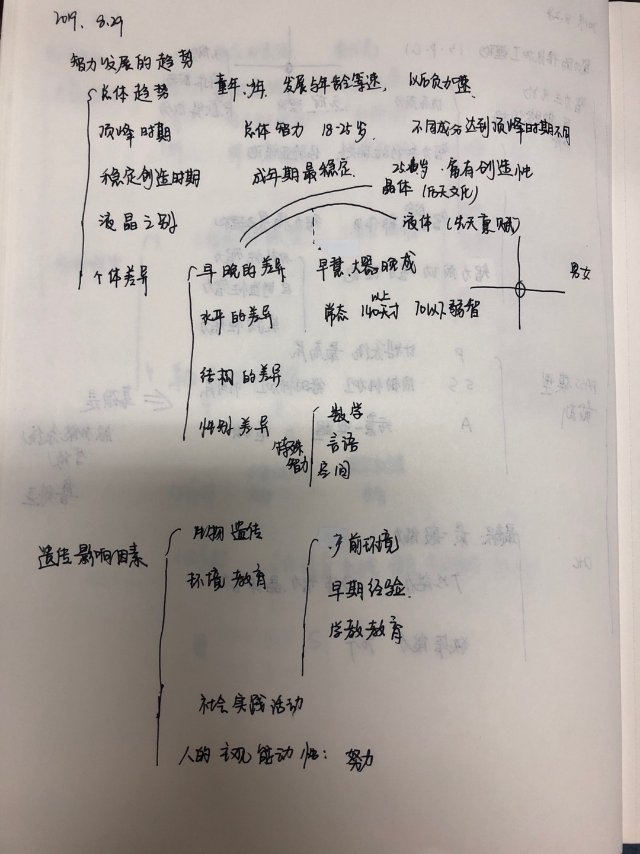 2019. 8.29
智力发展的趋势
总体趋势 童年.少年. 发展与年龄等速, 以后负加速.
顶峰时期 总体智力 18-25岁. 不同成分达到顶峰时期不同
稳定创造时期 成年期最稳定. 富有创造性
晶体 (后天文化)
液晶之别 液体 (先天禀赋)
个体差异 早晚的差异 早慧.大器晚成 男女
水平的差异 常态 140以上天才 70以下弱智
结构的差异
性别差异 数学
特殊智力 言语
空间
遗传影响因素 生物遗传
产前环境
环境教育 早期经验.
学教教育
社会实践活动
人的主观能动性: 努力